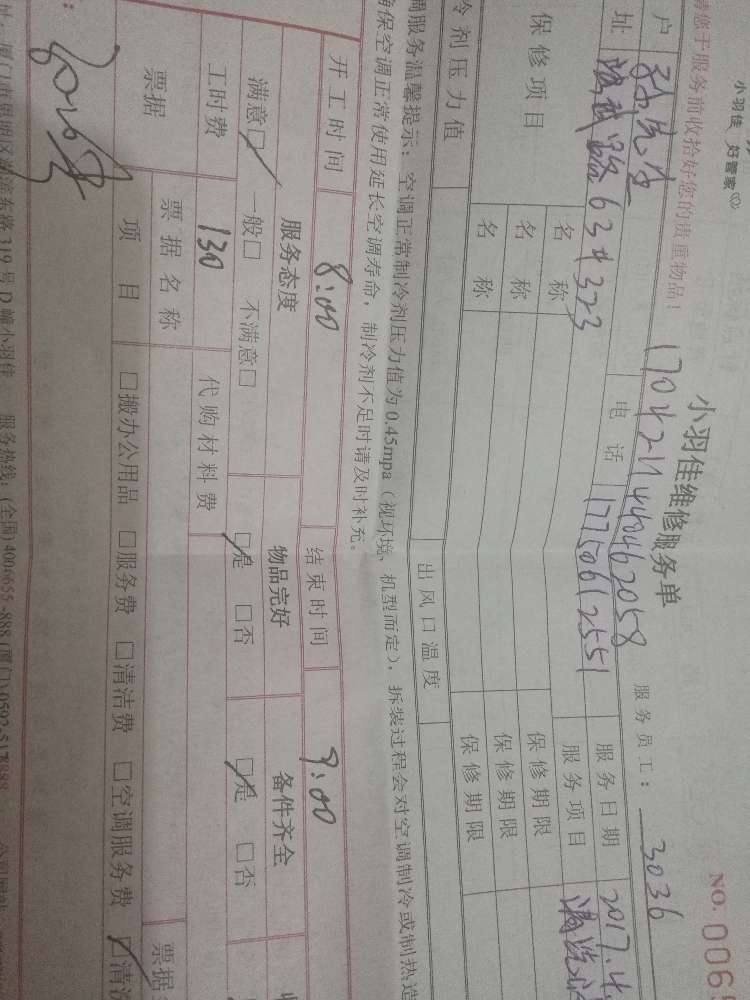 小羽佳 好管家
请您于服务前收拾好您的贵重物品!
小羽佳维修服务单
NO. 006
1704217440462058
服务员工: 3036
户 孙先生 电话 17750612551 服务日期 2017.4
址 路63#323 服务项目 清洗
保修项目 名称 保修期限
名称 保修期限
名称 保修期限
冷剂压力值 出风口温度
调服务温馨提示: 空调正常制冷剂压力值为0.45mpa (视环境、机型而定), 拆装过程会对空调制冷或制热造
确保空调正常使用延长空调寿命, 制冷剂不足时请及时补充。
开工时间 8:00 结束时间 9:00
服务态度 物品完好 备件齐全
满意□ 一般□ 不满意□ □是 □否 □是 □否
工时费 130 代购材料费
票据 票据名称 票据
项目 □搬办公用品 □服务费 □清洁费 □空调服务费 □清洁
址: 厦门市思明区湖滨东路319号D幢小羽佳 服务热线: (全国)400-655-888 (厦门)0592-517888